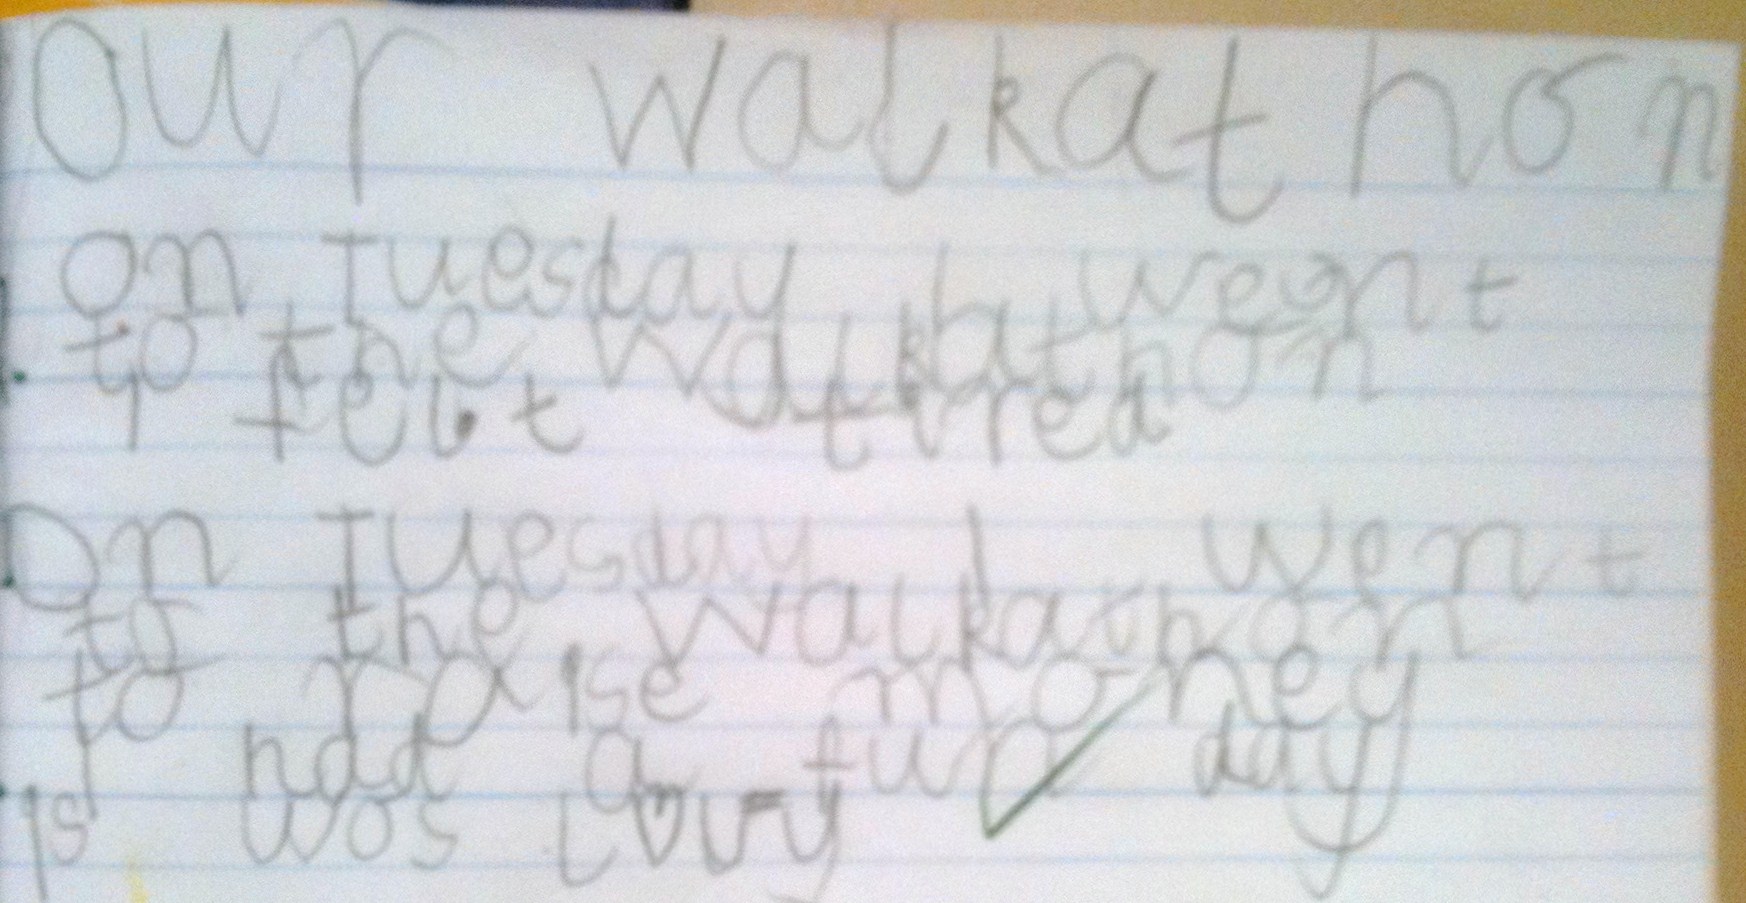 Our walkathon
On Tuesday I went
to the walkathon
I felt tired
On Tuesday I went
to the walkathon
to raise money
I had a fun day
was